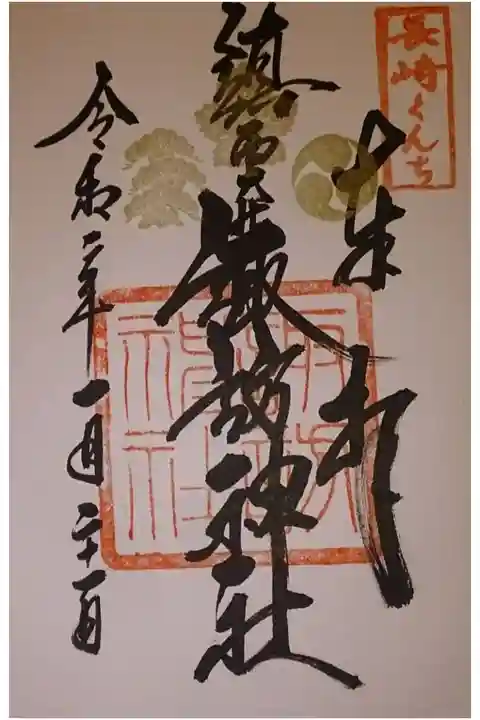 長崎くんち
奉拝
鎮西大社
諏訪神社
令和二年一月二十一日